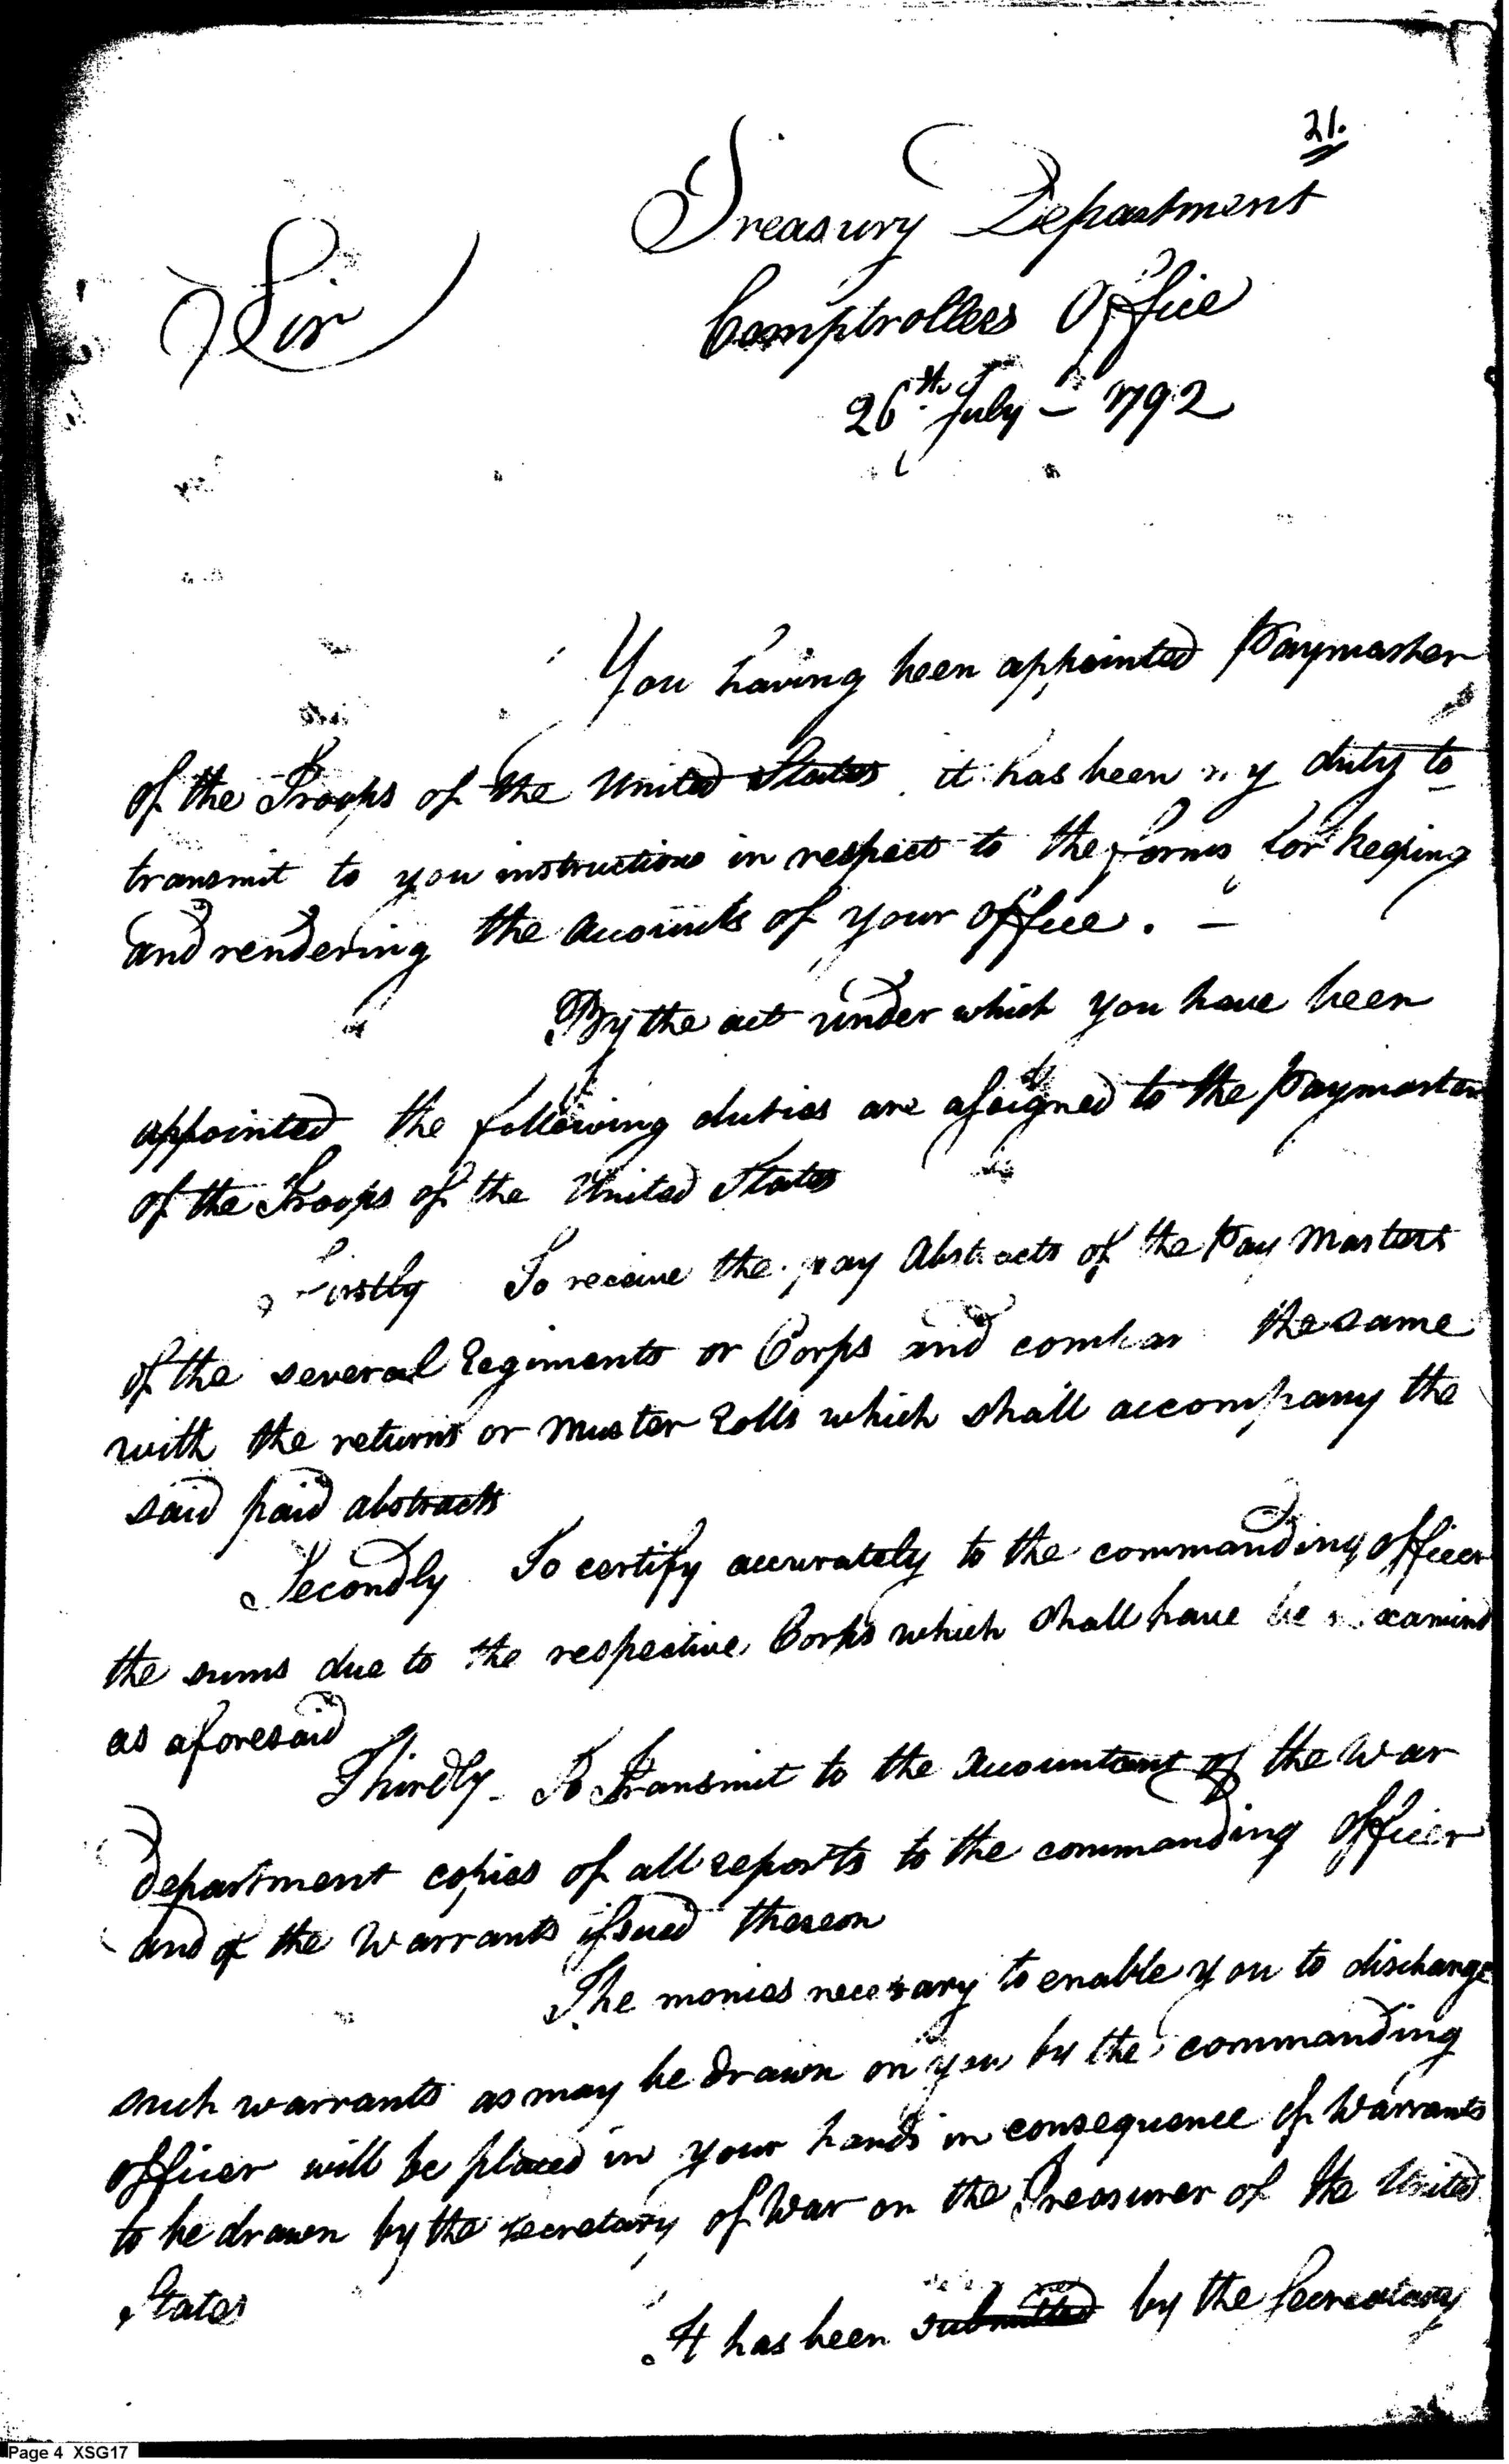 21.
Treasury Department
Sir
Comptrollers Office
26th July – 1792
You having been appointed Paymaster
of the Troops of the United States it has been my duty to
transmit to you instructions in respect to the forms for keeping
and rendering the accounts of your office. –
By the act under which you have been
appointed the following duties are assigned to the paymaster
of the Troops of the United States
Firstly To receive the pay Abstracts of the Pay Masters
of the several Regiments or Corps and compar the same
with the returns or muster Rolls which shall accompany the
said paid abstracts
Secondly To certify accurately to the commanding officer
the sums due to the respective Corps which shall have been examined
as aforesaid
Thirdly – To Transmit to the Accountant of the War
department copies of all reports to the commanding officer
and of the Warrants issued thereon
The monies necessary to enable you to discharge
such warrants as may be drawn on you by the commanding
officer will be placed in your hands in consequence of Warrants
to be drawn by the secretary of War on the Treasurer of the United
States
It has been submitted by the Secretary
Page 4 XSG17